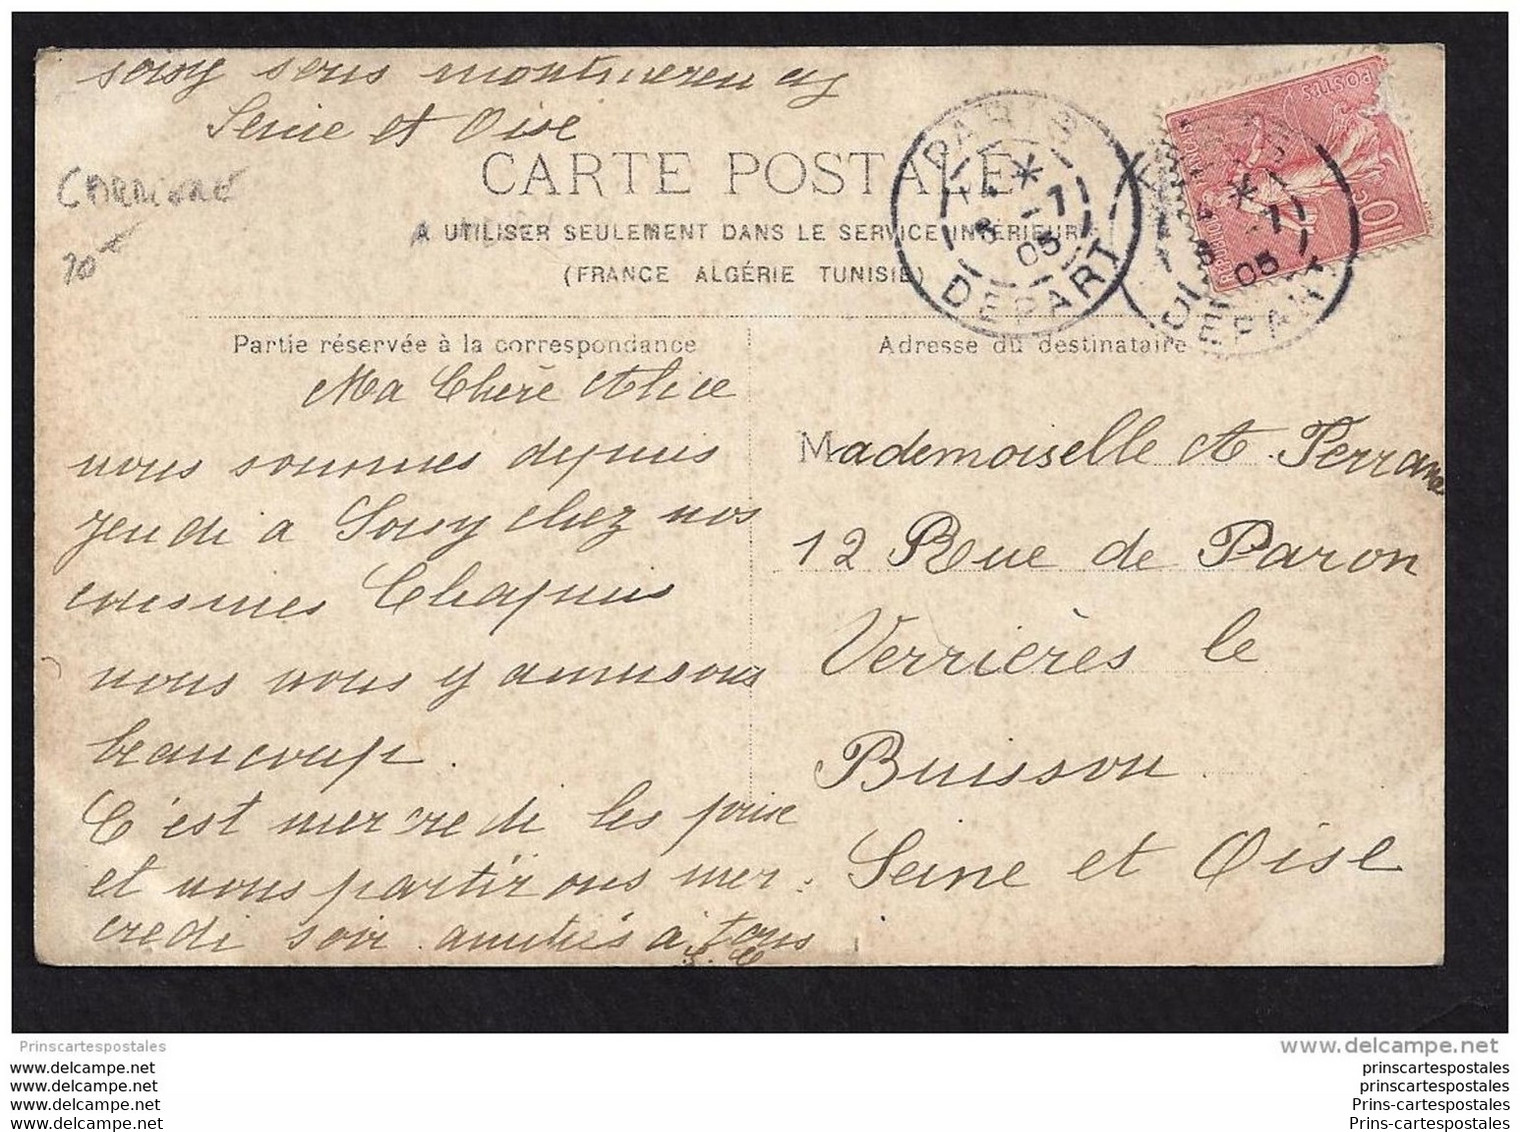 soisy sous montmorency
Seine et Oise
CARTE POSTALE
A UTILISER SEULEMENT DANS LE SERVICE INTÉRIEUR
(FRANCE ALGÉRIE TUNISIE)
CARRIÈRE
70
PARIS
7
05
DEPART
PARIS
7
05
DEPART
POSTES
10c
Partie réservée à la correspondance
Ma Chère Alice
nous sommes depuis
jeudi à Soisy chez nos
cousines Chapuis
nous nous y amusons
beaucoup.
C'est mercredi les prix
et nous partirons mer-
credi soir amitiés à tous
Adresse du destinataire
Mademoiselle A. Ferrand
12 Rue de Paron
Verrières le
Buisson
Seine et Oise
Prinscartespostales
www.delcampe.net
www.delcampe.net
www.delcampe.net
www.delcampe.net
www.delcampe.net
prinscartespostales
prinscartespostales
Prins-cartespostales
Prins-cartespostales